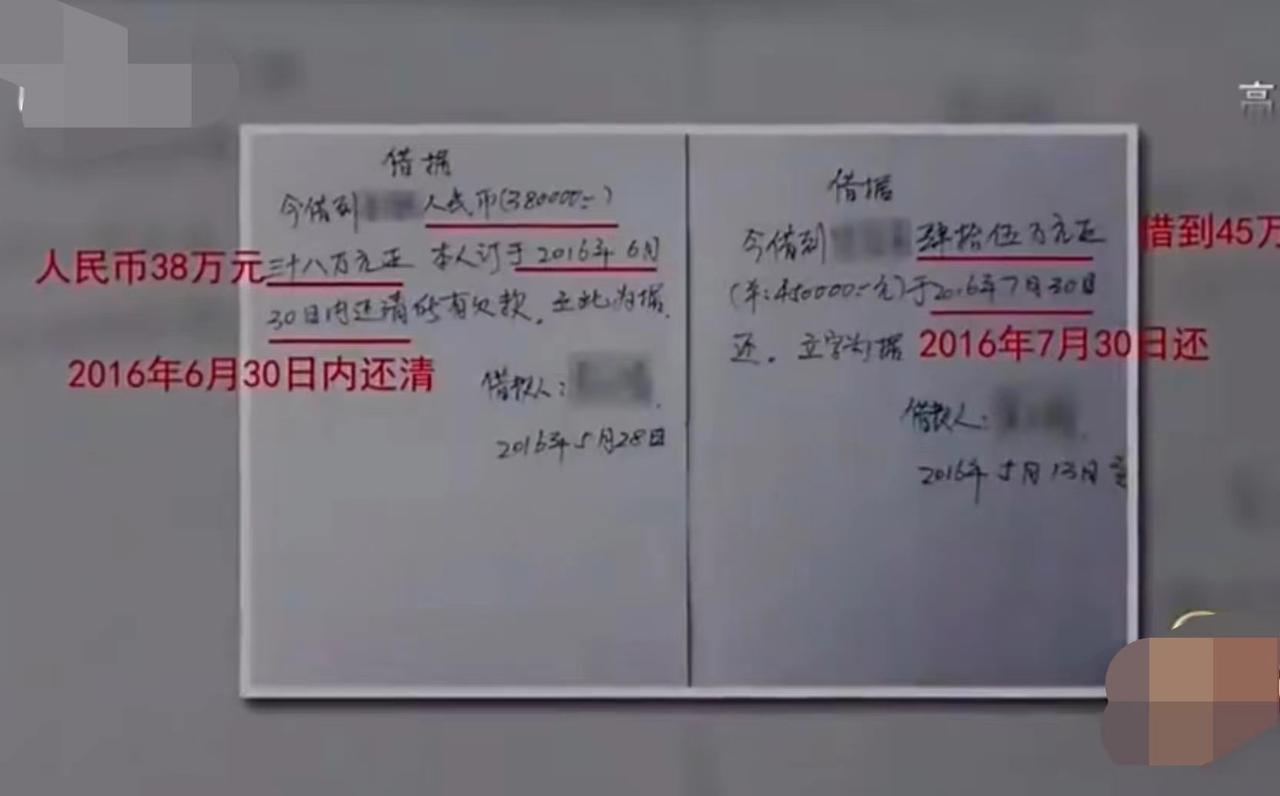 高
借据
今借到
人民币(380000:-)
三十八万元正 本人订于2016年6月
30日内还清所有欠款,立此为据.
借款人:
2016年5月28日
借据
今借到
肆拾伍万元正
(羊:450000:-元)于2016年7月30日
还.立字为据
借款人:
2016年5月13日
人民币38万元
2016年6月30日内还清
借到45万
2016年7月30日还